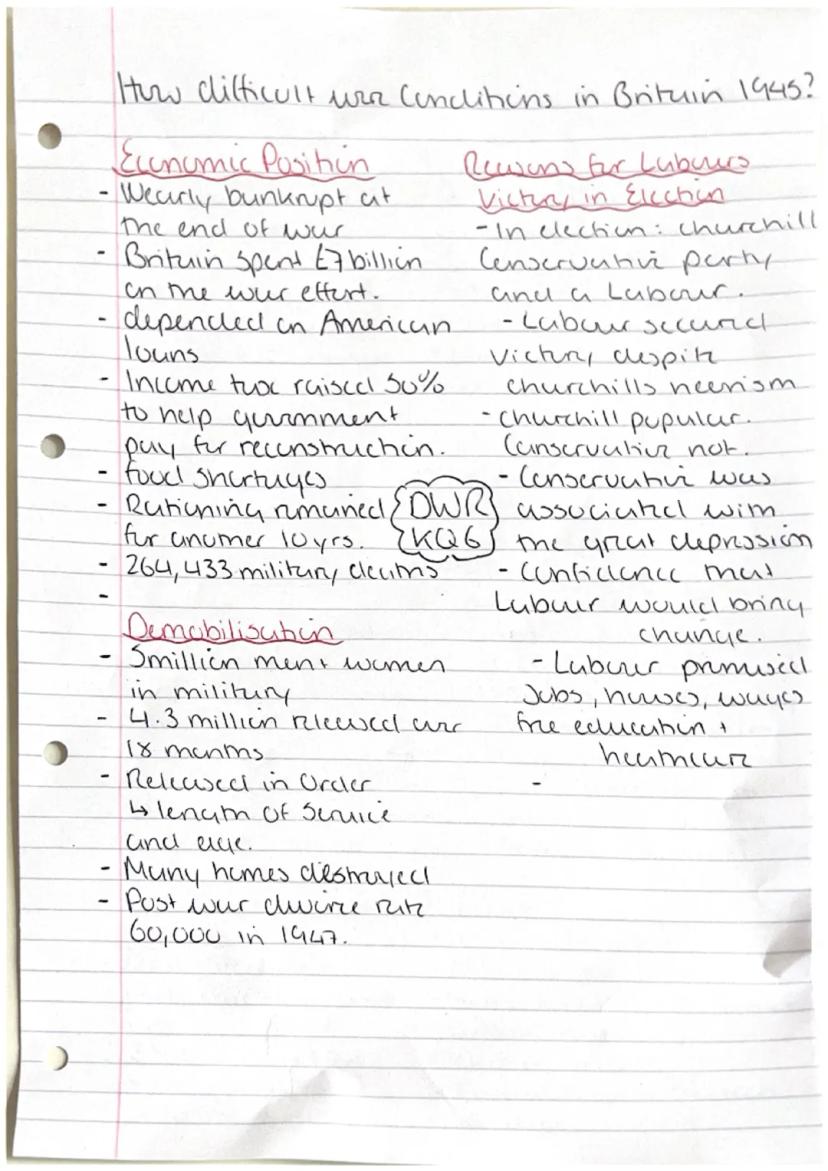 How difficult were Conditions in Britain 1945?
Economic Position
- Nearly bankrupt at
the end of war
- Britain spent £7 billion
on the war effort.
- depended on American
loans
- Income tax raised 50%
to help government
pay for reconstruction.
- food shortages
- Rationing remained
for another 10 yrs.
- 264,433 military deaths
-
DWR
KQ6
Demobilisation
- 5million men + women
in military
- 4.3 million released over
18 months
- Released in Order
↳ length of service
and age.
- Many homes destroyed
- Post war divorce rate
60,000 in 1947.
Reasons for Labours
Victory in Election
- In election: churchill
Conservative party
and a Labour.
- Labour secured
victory despite
churchills heroism
- churchill popular.
Conservative not.
- Conservative was
associated with
the great depression
- Confidence that
Labour would bring
change.
- Labour promised
Jobs, homes, wages
free education +
healthcare
-